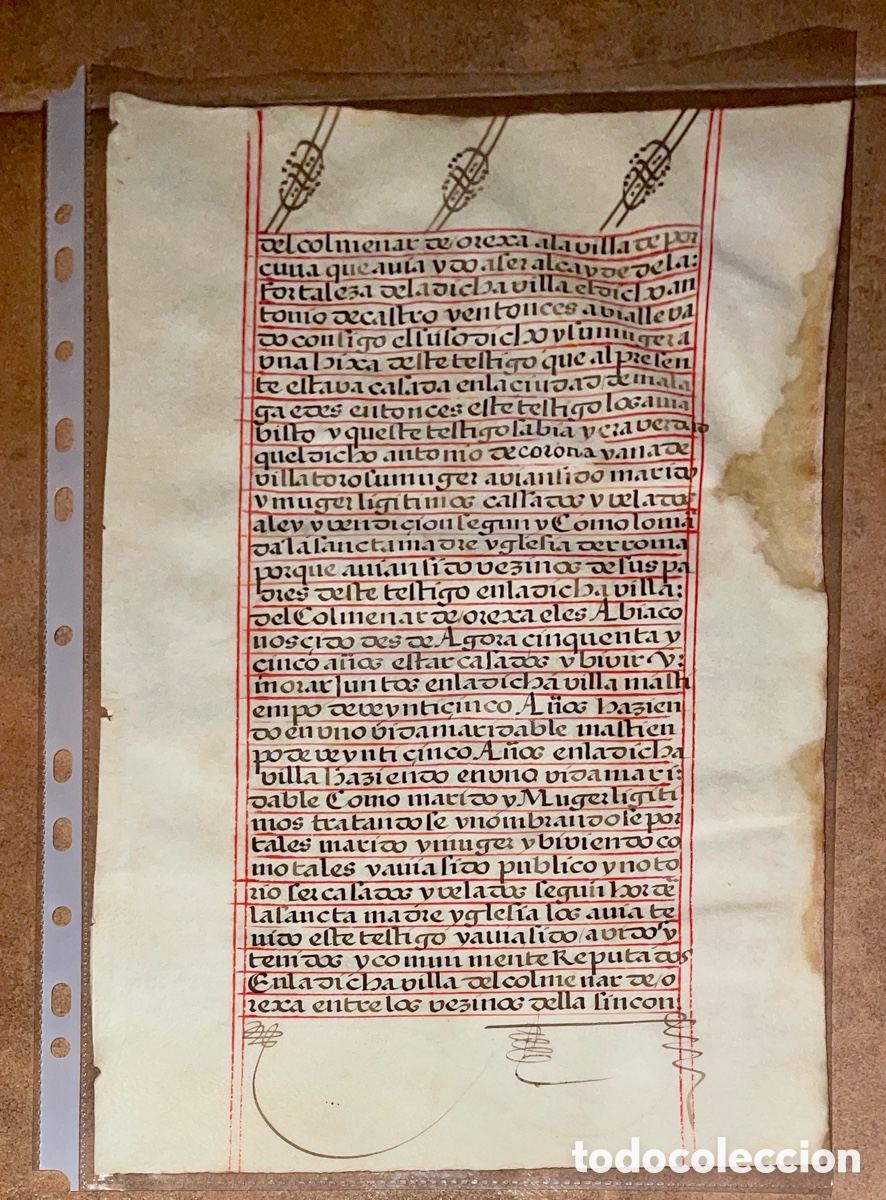 del colmenar de orexa ala villa de por
cuna que auia ydo a ser alcayde de la:
fortaleza dela dicha villa el dicho an
tonio de castro y entonces auia lleva
do consigo el suso dicho y su muger a
vna hixa deste testigo que al presen
te estava casada en la ciudad de mala
ga e des entonces este testigo los auia
bisto y queste testigo sabia y era verdad
quel dicho antonio de corona y ana de
villatoro su muger avian sido marido
y muger ligitimos cassados y velados
a ley y bendiçion segun y Como lo man
da la sancta madre yglesia de rroma
porque auian sido vezinos de sus pa
dres deste testigo en la dicha villa:
del Colmenar de orexa e les Abia co
nosçido desde Agora çinquenta y
çinco años estar casados y bivir y:
morar Juntos en la dicha villa mas ti
empo de veynti çinco Años hazien
do en vno vida maridable mas tien
po de veynti çinco Años en la dicha
villa haziendo en vno vida mari:
dable Como marido y Muger ligiti
mos tratandose y nombrandose por
tales marido y muger y biviendo co
mo tales y auia sido publico y noto
rio ser casados y velados segun horde
la sancta madre yglesia los auia te
nido este testigo y auia sido avido y
tenidos y comunmente Reputados
En la dicha villa del colmenar de o
rexa entre los vezinos della sin con
todocoleccion